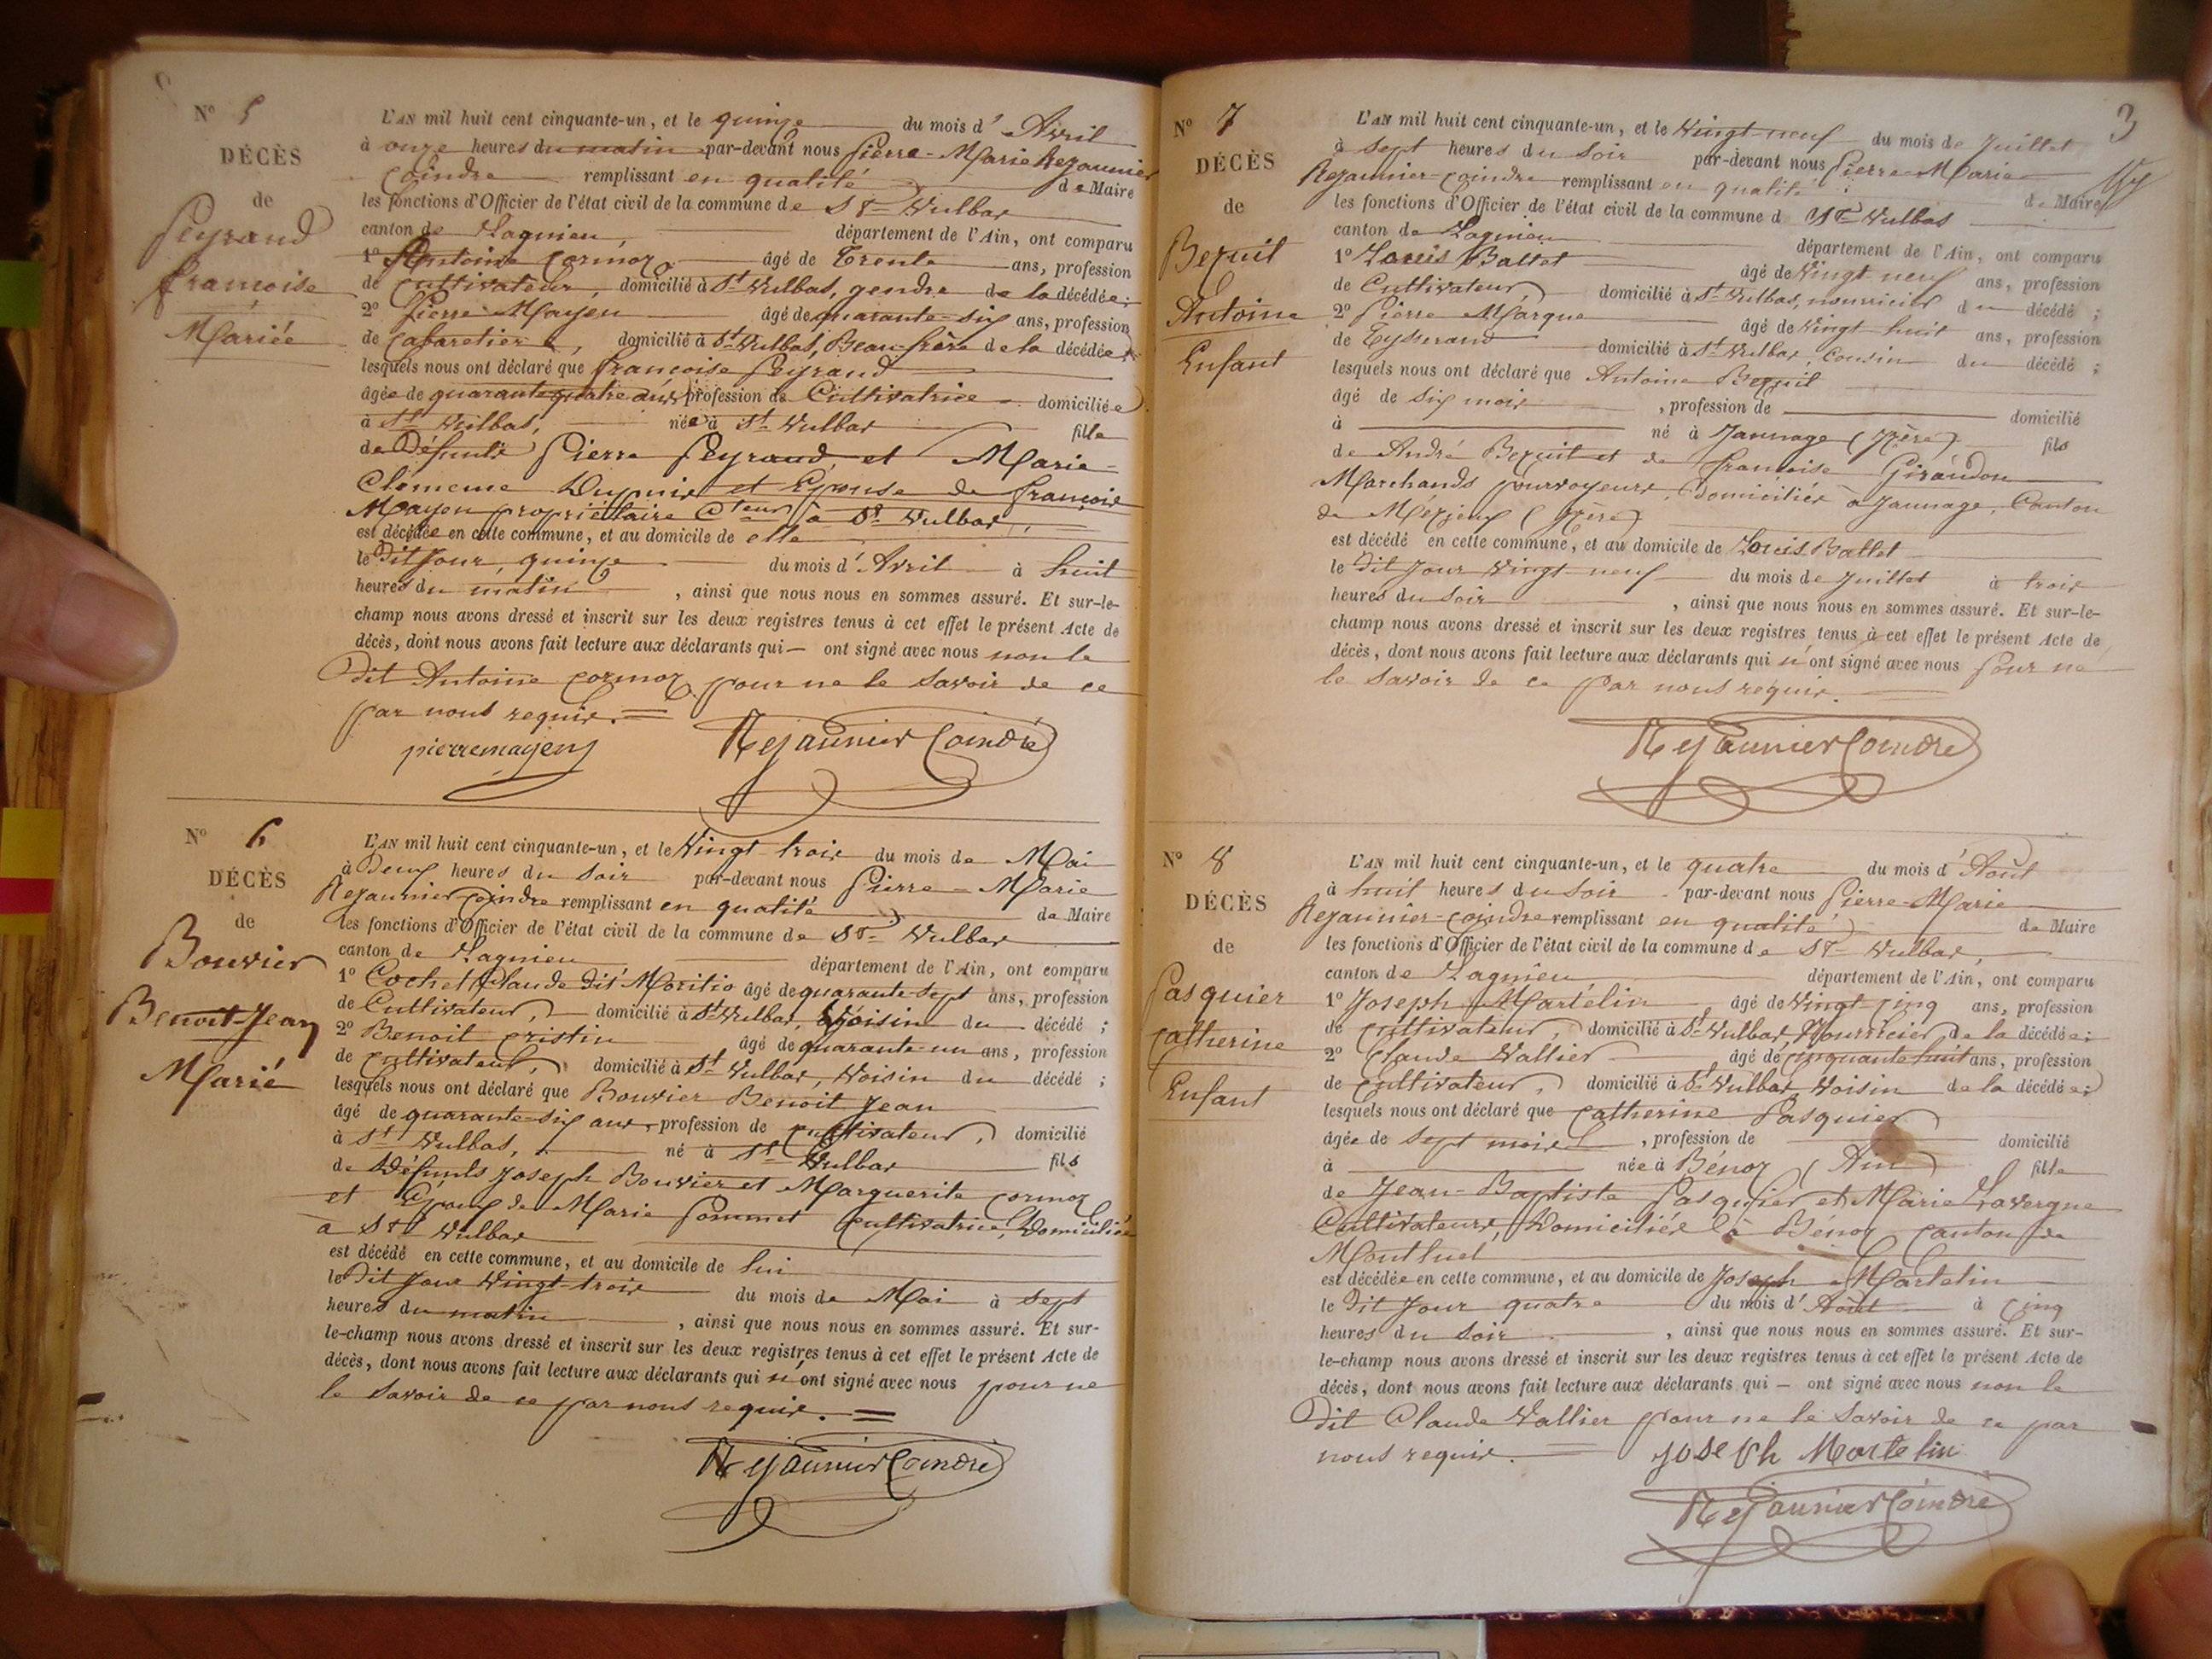 N° 5
DÉCÈS
de
Peyraud
françoise
Mariée
L'AN mil huit cent cinquante-un, et le quinze du mois d'Avril
à onze heures du matin par-devant nous Pierre-Marie Rejaunier
Coindre remplissant en qualité de Maire
les fonctions d'Officier de l'état civil de la commune de St Vulbas
canton de Lagnieu, département de l'Ain, ont comparu
1° Antoine Cormoz âgé de Trente ans, profession
de Cultivateur, domicilié à St Vulbas, gendre de la décédée;
2° Pierre Mayen âgé de quarante-six ans, profession
de Cabaretier, domicilié à St Vulbas, Beau-frère de la décédée;
lesquels nous ont déclaré que françoise Peyraud
âgée de quarante quatre ans, profession de Cultivatrice domiciliée
à St Vulbas, née à St Vulbas fille
de Défunts Pierre Peyraud et Marie-
Clemence Dupuis et Epouse de françois
Mayen propriétaire Cteur à St Vulbas,
est décédée en cette commune, et au domicile de elle
le Dit Jour, quinze du mois d'Avril à huit
heures du matin, ainsi que nous nous en sommes assuré. Et sur-le-
champ nous avons dressé et inscrit sur les deux registres tenus à cet effet le présent Acte de
décès, dont nous avons fait lecture aux déclarants qui — ont signé avec nous non le
Dit Antoine Cormoz pour ne le Savoir de ce
par nous requis. =
pierre mayen Rejaunier Coindre
N° 6
DÉCÈS
de
Bouvier
Benoit-Jean
Marié
L'AN mil huit cent cinquante-un, et le Vingt-trois du mois de Mai
à Deux heures du Soir par-devant nous Pierre-Marie
Rejaunier Coindre remplissant en qualité de Maire
les fonctions d'Officier de l'état civil de la commune de St Vulbas
canton de Lagnieu département de l'Ain, ont comparu
1° Cochet Claude dit Moritio âgé de quarante-sept ans, profession
de Cultivateur, domicilié à St Vulbas, Voisin du décédé;
2° Benoit Cristin âgé de quarante-un ans, profession
de Cultivateur, domicilié à St Vulbas, Voisin du décédé;
lesquels nous ont déclaré que Bouvier Benoit Jean
âgé de quarante-six ans, profession de Cultivateur, domicilié
à St Vulbas, né à St Vulbas fils
de Défunts Joseph Bouvier et Marguerite Cormoz
et Epoux de Marie Pommet Cultivatrice, Domiciliée
à St Vulbas
est décédé en cette commune, et au domicile de lui
le Dit Jour Vingt-trois du mois de Mai à Sept
heures du matin, ainsi que nous nous en sommes assuré. Et sur-
le-champ nous avons dressé et inscrit sur les deux registres tenus à cet effet le présent Acte de
décès, dont nous avons fait lecture aux déclarants qui n'ont signé avec nous pour ne
le Savoir de ce par nous requis. =
Rejaunier Coindre
3
N° 7
DÉCÈS
de
Bezuit
Antoine
Enfant
L'AN mil huit cent cinquante-un, et le Vingt-neuf du mois de Juillet
à Sept heures du Soir par-devant nous Pierre-Marie
Rejaunier-Coindre remplissant en qualité de Maire
les fonctions d'Officier de l'état civil de la commune d St Vulbas
canton de Lagnieu département de l'Ain, ont comparu
1° Louis Ballet âgé de Vingt-neuf ans, profession
de Cultivateur domicilié à St Vulbas, nourricier du décédé;
2° Pierre Marque âgé de Vingt-huit ans, profession
de Tysserand domicilié à St Vulbas, Cousin du décédé;
lesquels nous ont déclaré que Antoine Bezuit
âgé de Six mois, profession de domicilié
à né à Jannage (Isère) fils
de André Bezuit et de françoise Girandon
Marchands pourvoyeurs, Domiciliés à Jannage, Canton
de Mézieux (Isère)
est décédé en cette commune, et au domicile de Louis Ballet
le Dit Jour Vingt-neuf du mois de Juillet à trois
heures du Soir, ainsi que nous nous en sommes assuré. Et sur-le-
champ nous avons dressé et inscrit sur les deux registres tenus à cet effet le présent Acte de
décès, dont nous avons fait lecture aux déclarants qui n'ont signé avec nous Pour ne
le Savoir de ce par nous requis.
Rejaunier Coindre
N° 8
DÉCÈS
de
Pasquier
Catherine
Enfant
L'AN mil huit cent cinquante-un, et le quatre du mois d'Août
à huit heures du Soir par-devant nous Pierre-Marie
Rejaunier-Coindre remplissant en qualité de Maire
les fonctions d'Officier de l'état civil de la commune de St Vulbas,
canton de Lagnieu département de l'Ain, ont comparu
1° Joseph Martelin âgé de Vingt-cinq ans, profession
de Cultivateur, domicilié à St Vulbas, Nourricier de la décédée;
2° Claude Vallier âgé de Cinquante huit ans, profession
de Cultivateur, domicilié à St Vulbas, Voisin de la décédée;
lesquels nous ont déclaré que Catherine Pasquier
âgée de Sept mois, profession de domicilié
à née à Bénoz (Ain) fille
de Jean-Baptiste Pasquier et Marie Lavergne
Cultivateurs, Domiciliés à Bénoz Canton de
Montluel
est décédée en cette commune, et au domicile de Joseph Martelin
le Dit Jour quatre du mois d'Août à Cinq
heures du Soir, ainsi que nous nous en sommes assuré. Et sur-
le-champ nous avons dressé et inscrit sur les deux registres tenus à cet effet le présent Acte de
décès, dont nous avons fait lecture aux déclarants qui — ont signé avec nous non le
Dit Claude Vallier pour ne le Savoir de ce par
nous requis. = joseph Martelin
Rejaunier Coindre